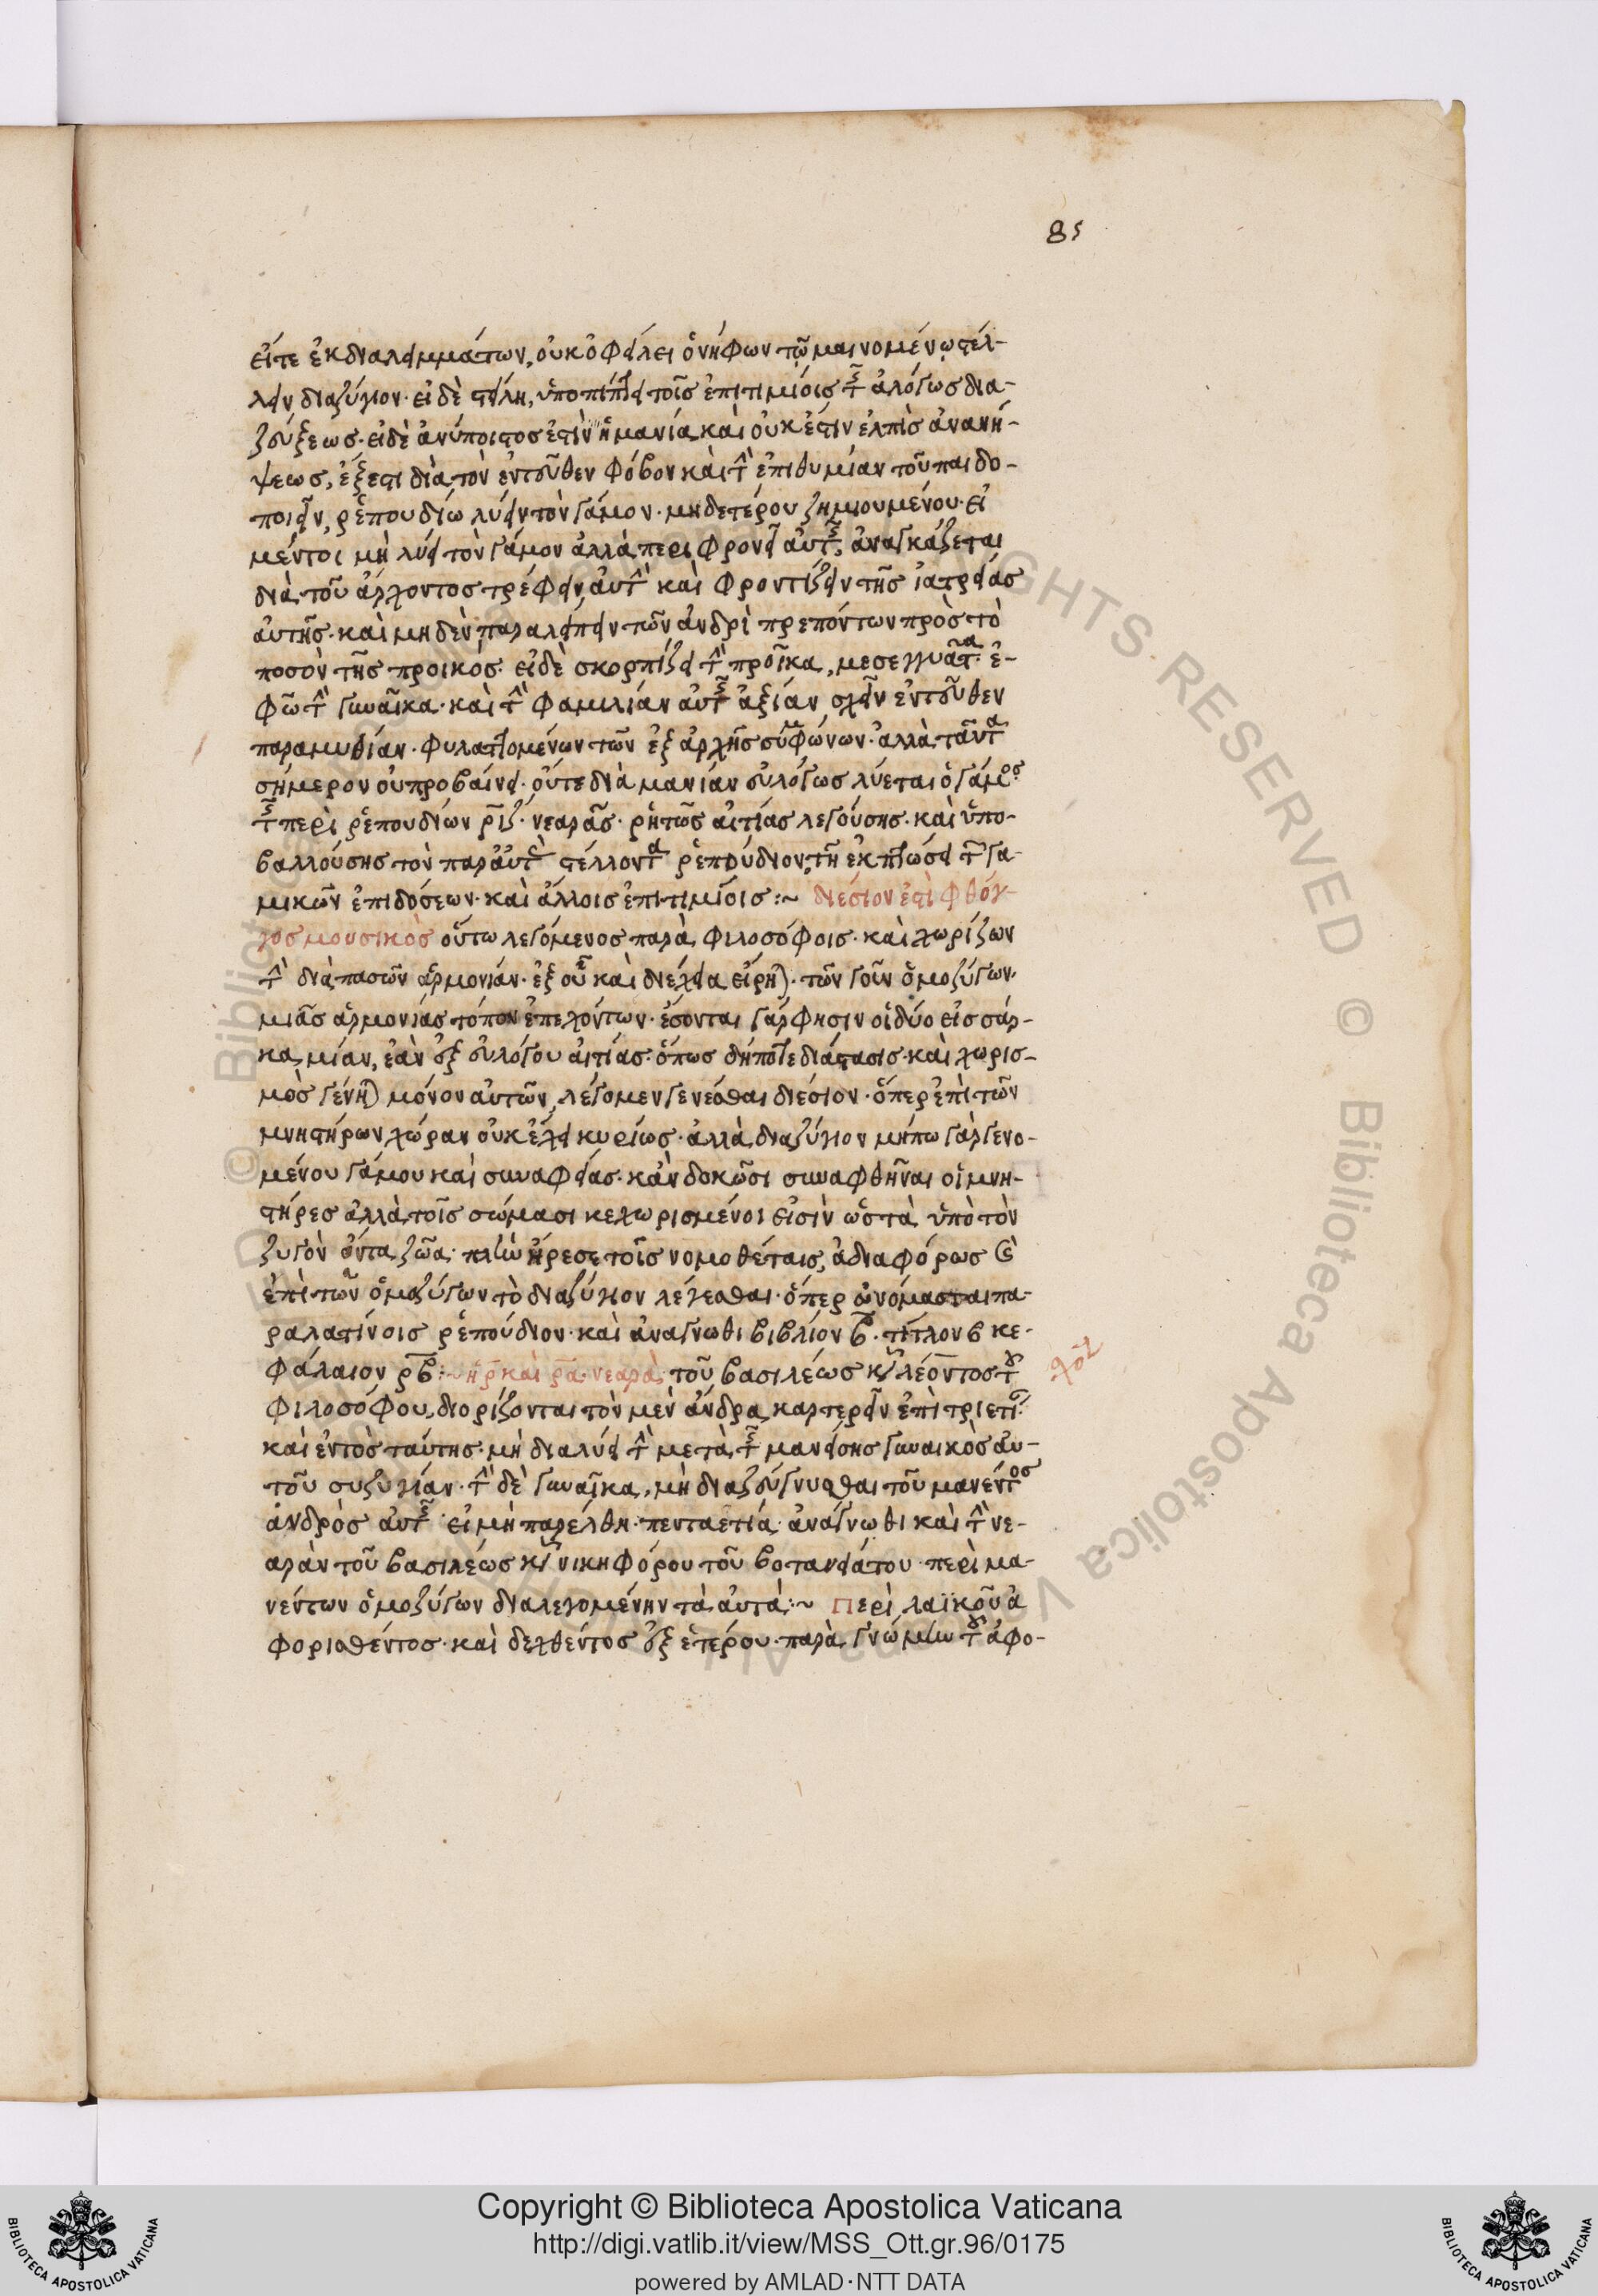 85
εἴτε ἐκ διαλειμμάτων, οὐκ ὀφείλει ὁ νήφων τῷ μαινομένῳ στέλ-
λειν διαζύγιον· εἰ δὲ στείλη, ὑποπίπτει τοῖς ἐπιτιμίοις τῆς ἀλόγως δια-
ζεύξεως· εἰ δὲ ἀνύποιστος ἐστὶν ἡ μανία καὶ οὐκ ἔστιν ἐλπὶς ἀνανή-
ψεως, ἔξεστι διὰ τὸν ἐντεῦθεν φόβον καὶ τὴν ἐπιθυμίαν τοῦ παιδο-
ποιεῖν, ῥεπουδίω λύειν τὸν γάμον· μηδετέρου ζημιουμένου· εἰ
μέντοι μὴ λύει τὸν γάμον ἀλλὰ περιφρονεῖ αὐτῆς, ἀναγκάζεται
διὰ τοῦ ἄρχοντος τρέφειν αὐτὴν καὶ φροντίζειν τῆς ἰατρείας
αὐτῆς· καὶ μηδὲν παραλείπειν τῶν ἀνδρὶ πρεπόντων πρὸς τὸ
ποσὸν τῆς προικός· εἰ δὲ σκορπίζει τὴν προῖκα, μεσεγγυᾶται· ἐ-
φῶ τὴν γυναῖκα· καὶ τὴν φαμιλίαν αὐτῆς ἀξίαν σχεῖν ἐντεῦθεν
παραμυθίαν· φυλαττομένων τῶν ἐξ ἀρχῆς συμφώνων· ἀλλὰ ταῦτα
σήμερον οὐ προβαίνει· οὔτε διὰ μανίαν εὐλόγως λύεται ὁ γάμος·
τῆς περὶ ῥεπουδίων ριζ· νεαρᾶς· ῥητῶς αἰτίας λεγούσης· καὶ ὑπο-
βαλλούσης τὸν παρ αὐτὰς στέλλοντα ῥεπούδιον, τῆ ἐκπτώσει τῶν γα-
μικῶν ἐπιδόσεων· καὶ ἄλλοις ἐπιτιμίοις :~ διέσιον ἐστὶ φθόγ-
γος μουσικὸς οὕτω λεγόμενος παρὰ φιλοσόφοις· καὶ χωρίζων
τὴν διὰ πασῶν ἁρμονίαν· ἐξ οὗ καὶ διεχεία εἴρηται· τῶν γοῦν ὁμοζύγων·
μιᾶς ἁρμονίας τόπον ἐπεχόντων· ἔσονται γάρ φησιν οἱ δύο εἰς σάρ-
κα μίαν, ἐὰν ἐξ εὐλόγου αἰτίας· ὅπως δήποτε διάστασις· καὶ χωρισ-
μὸς γένηται μόνον αὐτῶν, λέγομεν γενέσθαι διέσιον· ὅπερ ἐπὶ τῶν
μνηστήρων χώραν οὐκ ἔχει κυρίως· ἀλλὰ διαζύγιον μήπω γὰρ γενο-
μένου γάμου καὶ συναφείας· κἂν δοκῶσι συναφθῆναι οἱ μνη-
στήρες ἀλλὰ τοῖς σώμασι κεχωρισμένοι εἰσὶν ὡς τὰ ὑπὸ τὸν
ζυγὸν ὄντα ζῶα· πλὴν ἤρεσε τοῖς νομοθέταις, ἀδιαφόρως καὶ
ἐπὶ τῶν ὁμοζύγων τὸ διαζύγιον λέγεσθαι· ὅπερ ὠνόμασται πα-
ρα λατίνοις ῥεπούδιον· καὶ ἀνάγνωθι βιβλίον β· τίτλον β κε-
φάλαιον ρβ :~ ἡ ρ καὶ ρα· νεαρὰ· τοῦ βασιλέως κυ λέοντος τοῦ
φιλοσόφου, διορίζονται τὸν μὲν ἄνδρα καρτερεῖν ἐπὶ τριετίαν·
καὶ ἐντὸς ταύτης· μὴ διαλύει τὴν μετὰ τῆς μανείσης γυναικὸς αὐ-
τοῦ συζυγίαν· τὴν δὲ γυναῖκα, μὴ διαζεύγνυσθαι τοῦ μανέντος
ἀνδρὸς αὐτῆς εἰ μὴ παρέλθη· πενταετία· ἀνάγνωθι καὶ τὴν νε-
αρὰν τοῦ βασιλέως κυ νικηφόρου τοῦ βοτανειάτου· περὶ μα-
νέντων ὁμοζύγων διαλεγομένην τὰ αὐτά :~ Περὶ λαϊκοῦ ἀ
φορισθέντος· καὶ δεχθέντος ἐξ ἑτέρου· παρὰ γνώμην τοῦ ἀφο-